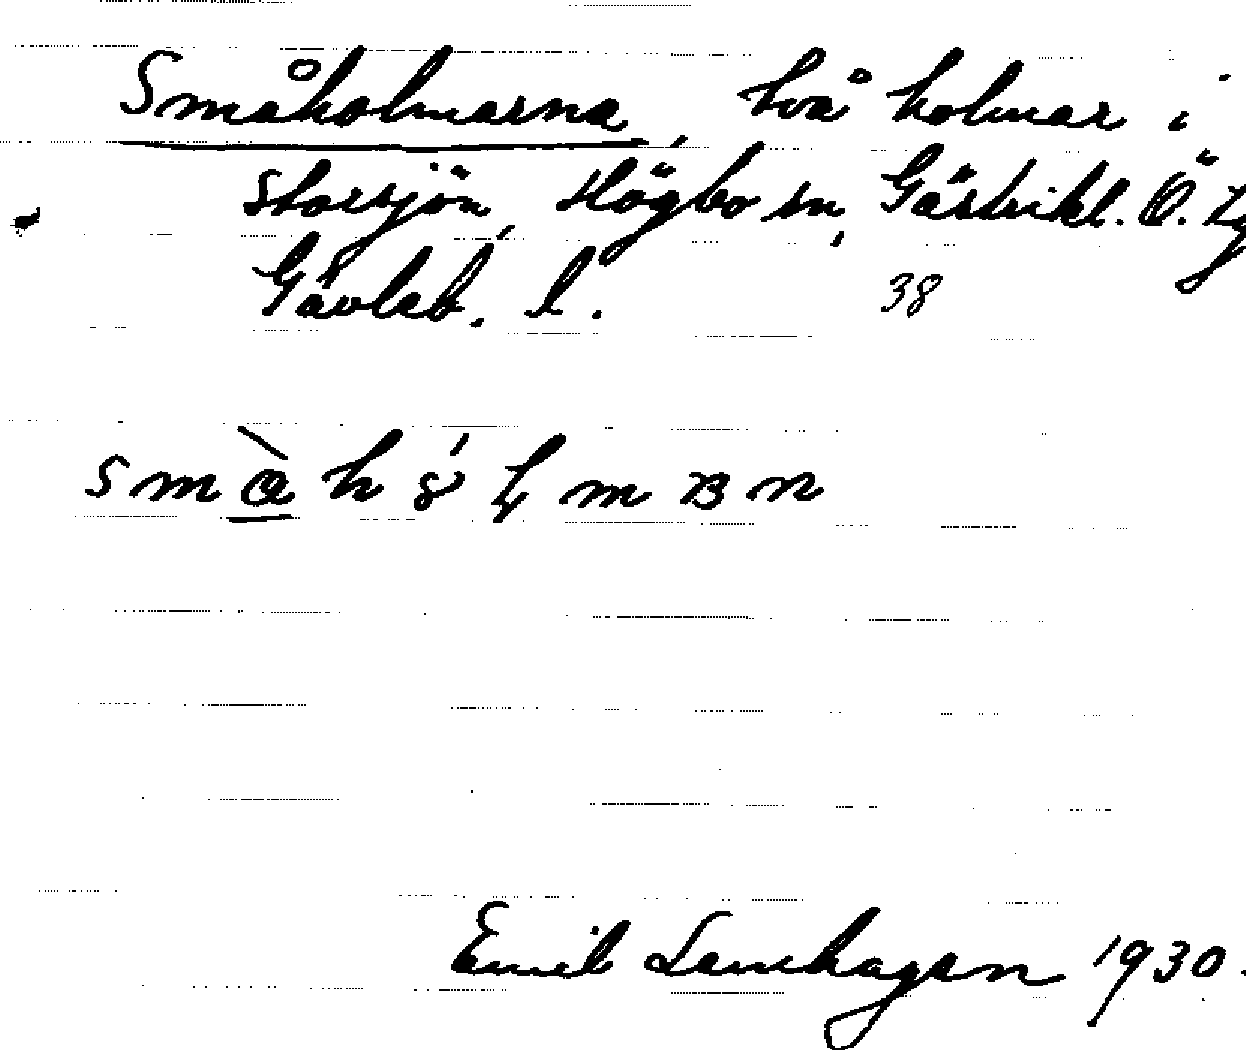 Småholmarna, två holmar i
Storsjön, Högbo sn, Gästrikl. Ö. tg
Gävleb. l. 38
Emil Lenhagen 1930.